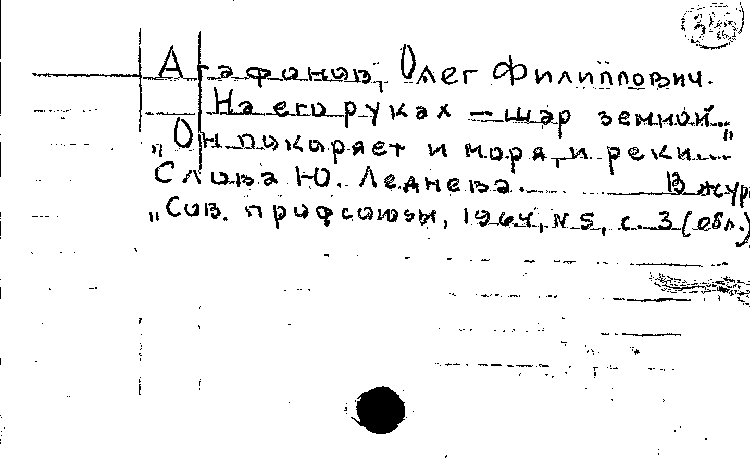 345
Агафонов, Олег Филиппович.
На его руках – шар земной...
„Он покоряет и моря, и реки..."
Слова Ю. Леднева. В жур
„Сов. профсоюзы, 1964, N 5, с. 3 (обл.)